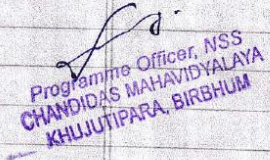 Programme Officer, NSS
CHANDIDAS MAHAVIDYALAYA
KHUJUTIPARA, BIRBHUM